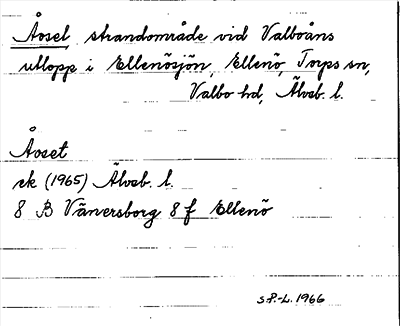 Åosel, strandområde vid Valboåns
utlopp i Ellenösjön, Ellenö, Torps sn,
Valbo hd, Älvsb. l.
Åoset
ek (1965) Älvsb. l.
8 B Vänersborg 8 f Ellenö
S.P.-L. 1966